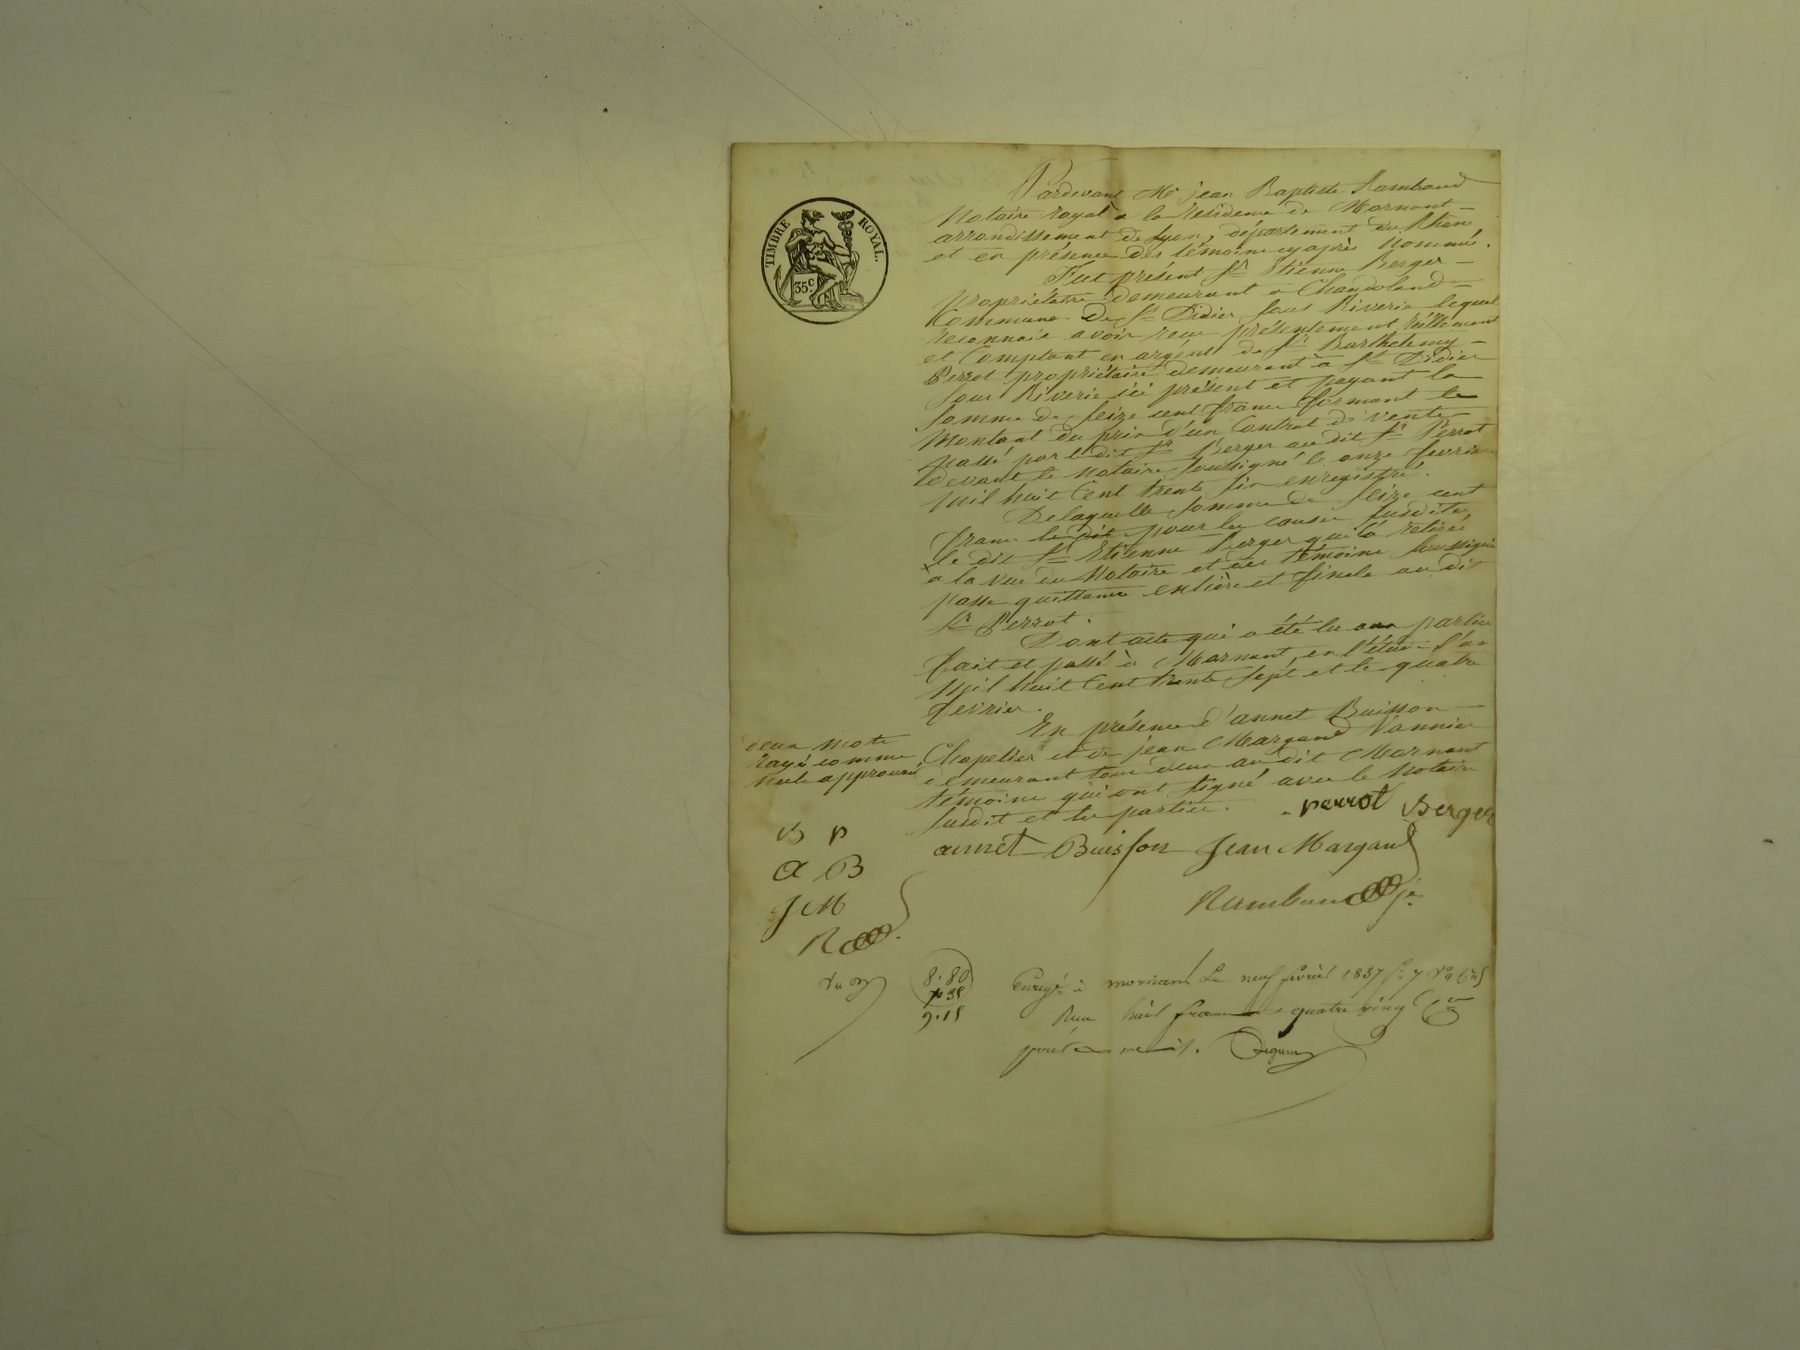 TIMBRE ROYAL.
35c
Pardevant Me jean Baptiste Rambaud
Notaire royal a la residence de Mornant
arrondissement de Lyon, département du Rhône
et en présence des témoins cyaprès nommés.
Fut présent Sr Etienne Berger
propriétaire demeurant a Chandoland
Commune de St Didier sous Riverie lequel
reconnais avoir recu présentement réellement
et Comptant en argent de Sr Barthelemy
Perrot propriétaire demeurant à St Didier
sous Riverie ici présent et payant la
somme de seize cent franc formant le
montant du prix d'un Contrat de vente
passé par le dit Sr Berger au dit Sr Perrot
devant le notaire soussigné le onze fevrier
mil huit Cent trente six enregistré.
De laquelle somme de seize cent
franc le dit pour les causes susdites
le dit Sr Etienne Berger qui l'a retirée
a la vue du Notaire et des témoins soussignés
passe quittance entière et finale au dit
Sr Perrot.
Dont acte qui a été lu aux parties
fait et passé à Mornant en l'étude l'an
mil huit Cent trente sept et le quatre
fevrier.
En présence d'annet Buisson
Chapelier et de jean Margand Vannier
demeurant tous deux au dit Mornant
témoins qui ont signé avec le Notaire
susdit et les parties.
deux mots
rayé comme
nuls approuvé
perrot Berger
annet Buisson Jean Margand
Rambaud jne
B P
A B
J M
R
8.80
35
9.15
Enregé à mornant Le neuf fevrier 1837 fo 7
Reçu huit francs quatre vingt